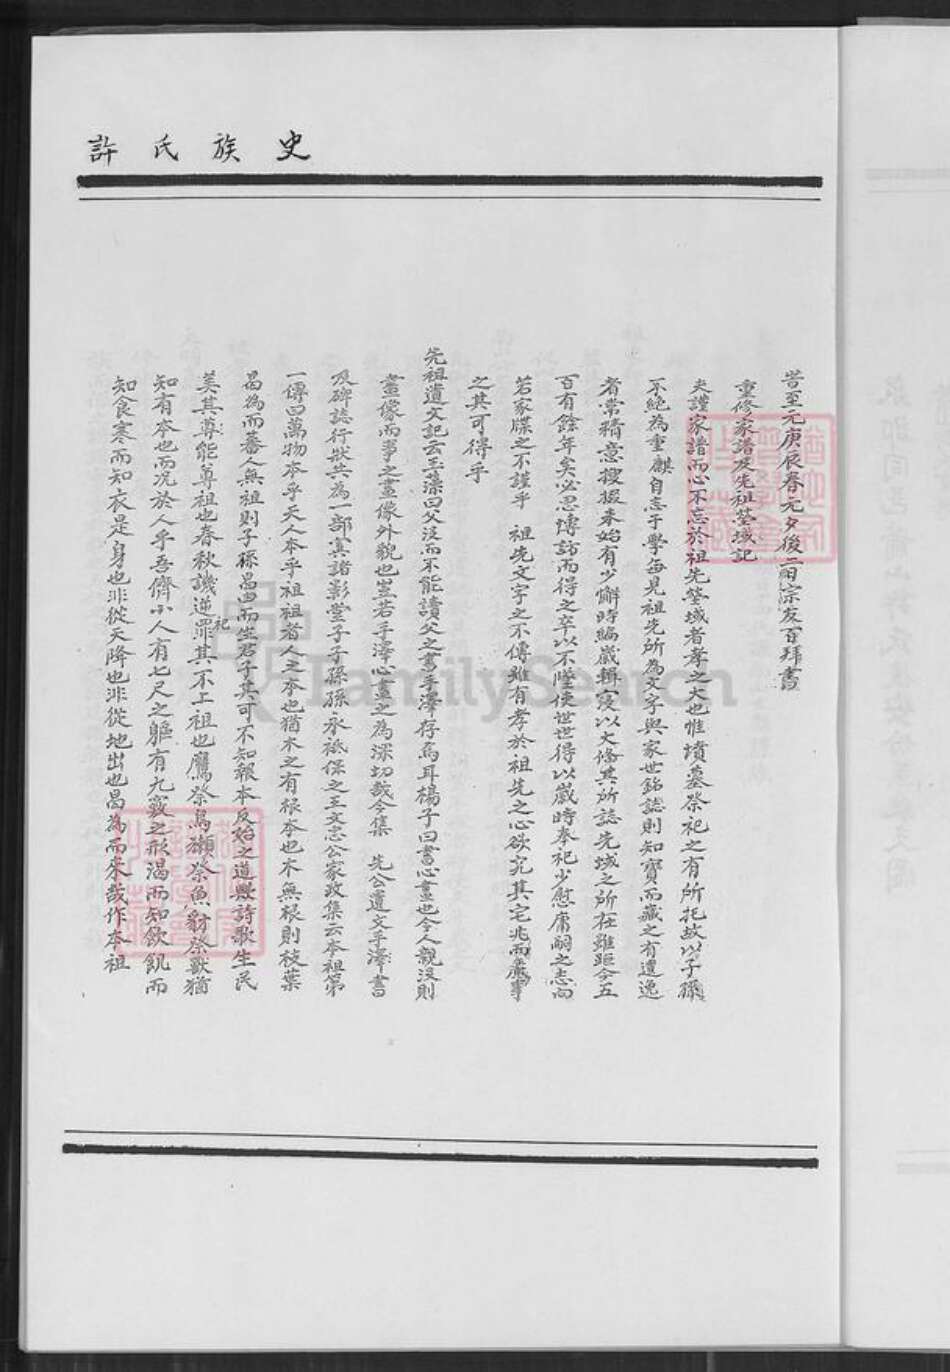 許氏族史
昔至元庚辰春元夕後二日宗友百拜書
重修家譜及先祖塋域記
夫謹家譜而心不忘於祖先塋域者孝之大也惟墳墓祭祀之有所托故以子孫
不絶為重麒自志于學每見祖先所為文字與家世銘誌則知寳而藏之有遺逸
者常精意搜掇未始有少懈時編歲輯寖以大僃其所誌先域之所在雖距今五
百有餘年矣必思博訪而得之卒以不墜使世世得以歲時奉祀少慰庸嗣之志向
若家牒之不謹乎 祖先文字之不傳雖有孝於祖先之心欲究其宅兆而事
之其可得乎
先祖遺文記云玉藻曰父沒而不能讀父之書手澤存焉耳楊子曰書心畫也今人親沒則
畫像而事之畫像外貌也豈若手澤心畫之為深切哉今集 先公遺文手澤書
及碑誌行狀共為一部寘諸影堂子子孫孫永祗保之王文忠公家政集云本祖第
一傳曰萬物本乎天人本乎祖祖者人之本也猶木之有根本也木無根則枝葉
曷為而蕃人無祖則子孫曷而生君子其可不知報本反始之道歟詩歌生民
美其尊能尊祖也春秋譏逆祀罪其不上祖也鷹祭鳥獺祭魚豺祭獸猶
知有本也而况於人乎吾儕小人有七尺之軀有九竅之形渴而知飲飢而
知食寒而知衣是身也非從天降也非從地出也曷為而來哉作本祖
FamilySearch